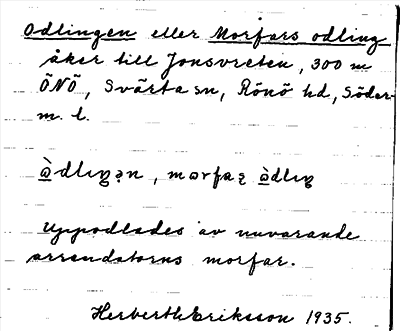 Odlingen eller Morfars odling
åker till Jonsvreten, 300 m
ÖNÖ, Svärta sn, Rönö hd, Söder-
m. l.
ὰdlıŋən, mωrfaʂ ὰdlıŋ
Uppodlades av nuvarande
arrendatorns morfar.
Herbert Eriksson 1935.